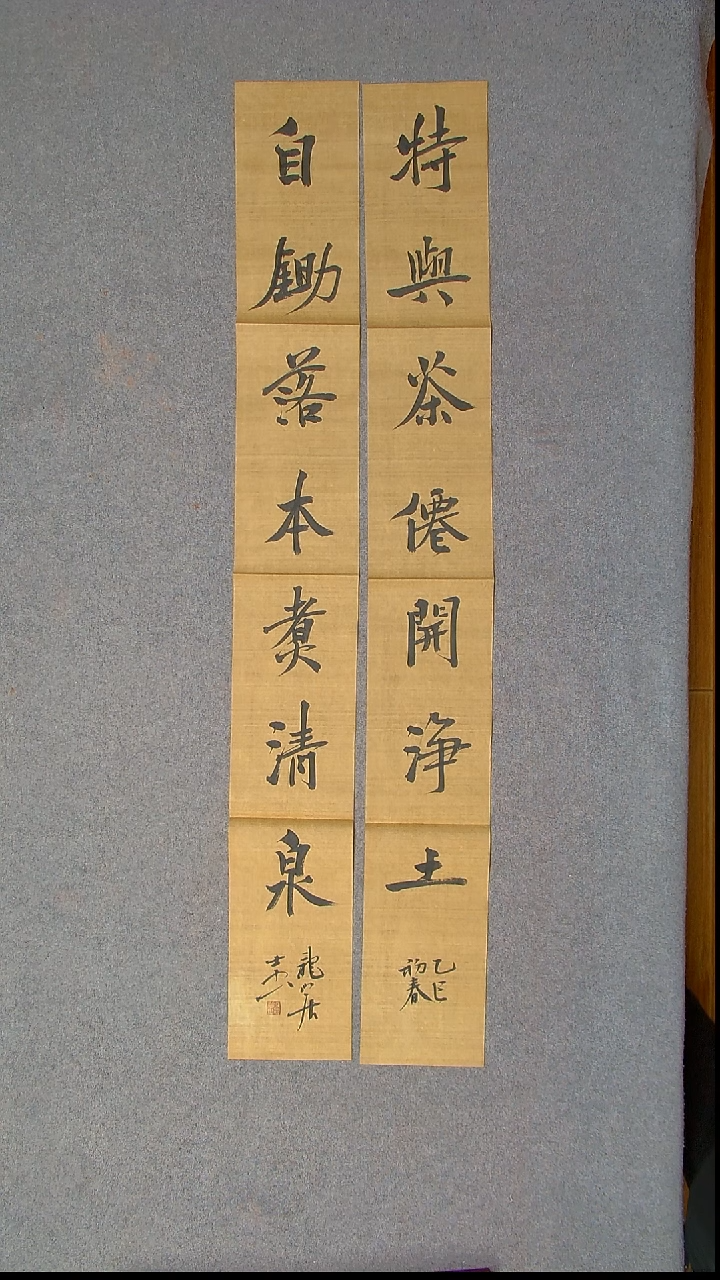 特與茶僊開淨土
乙巳
初春
自鋤落本煑清泉
龍
居